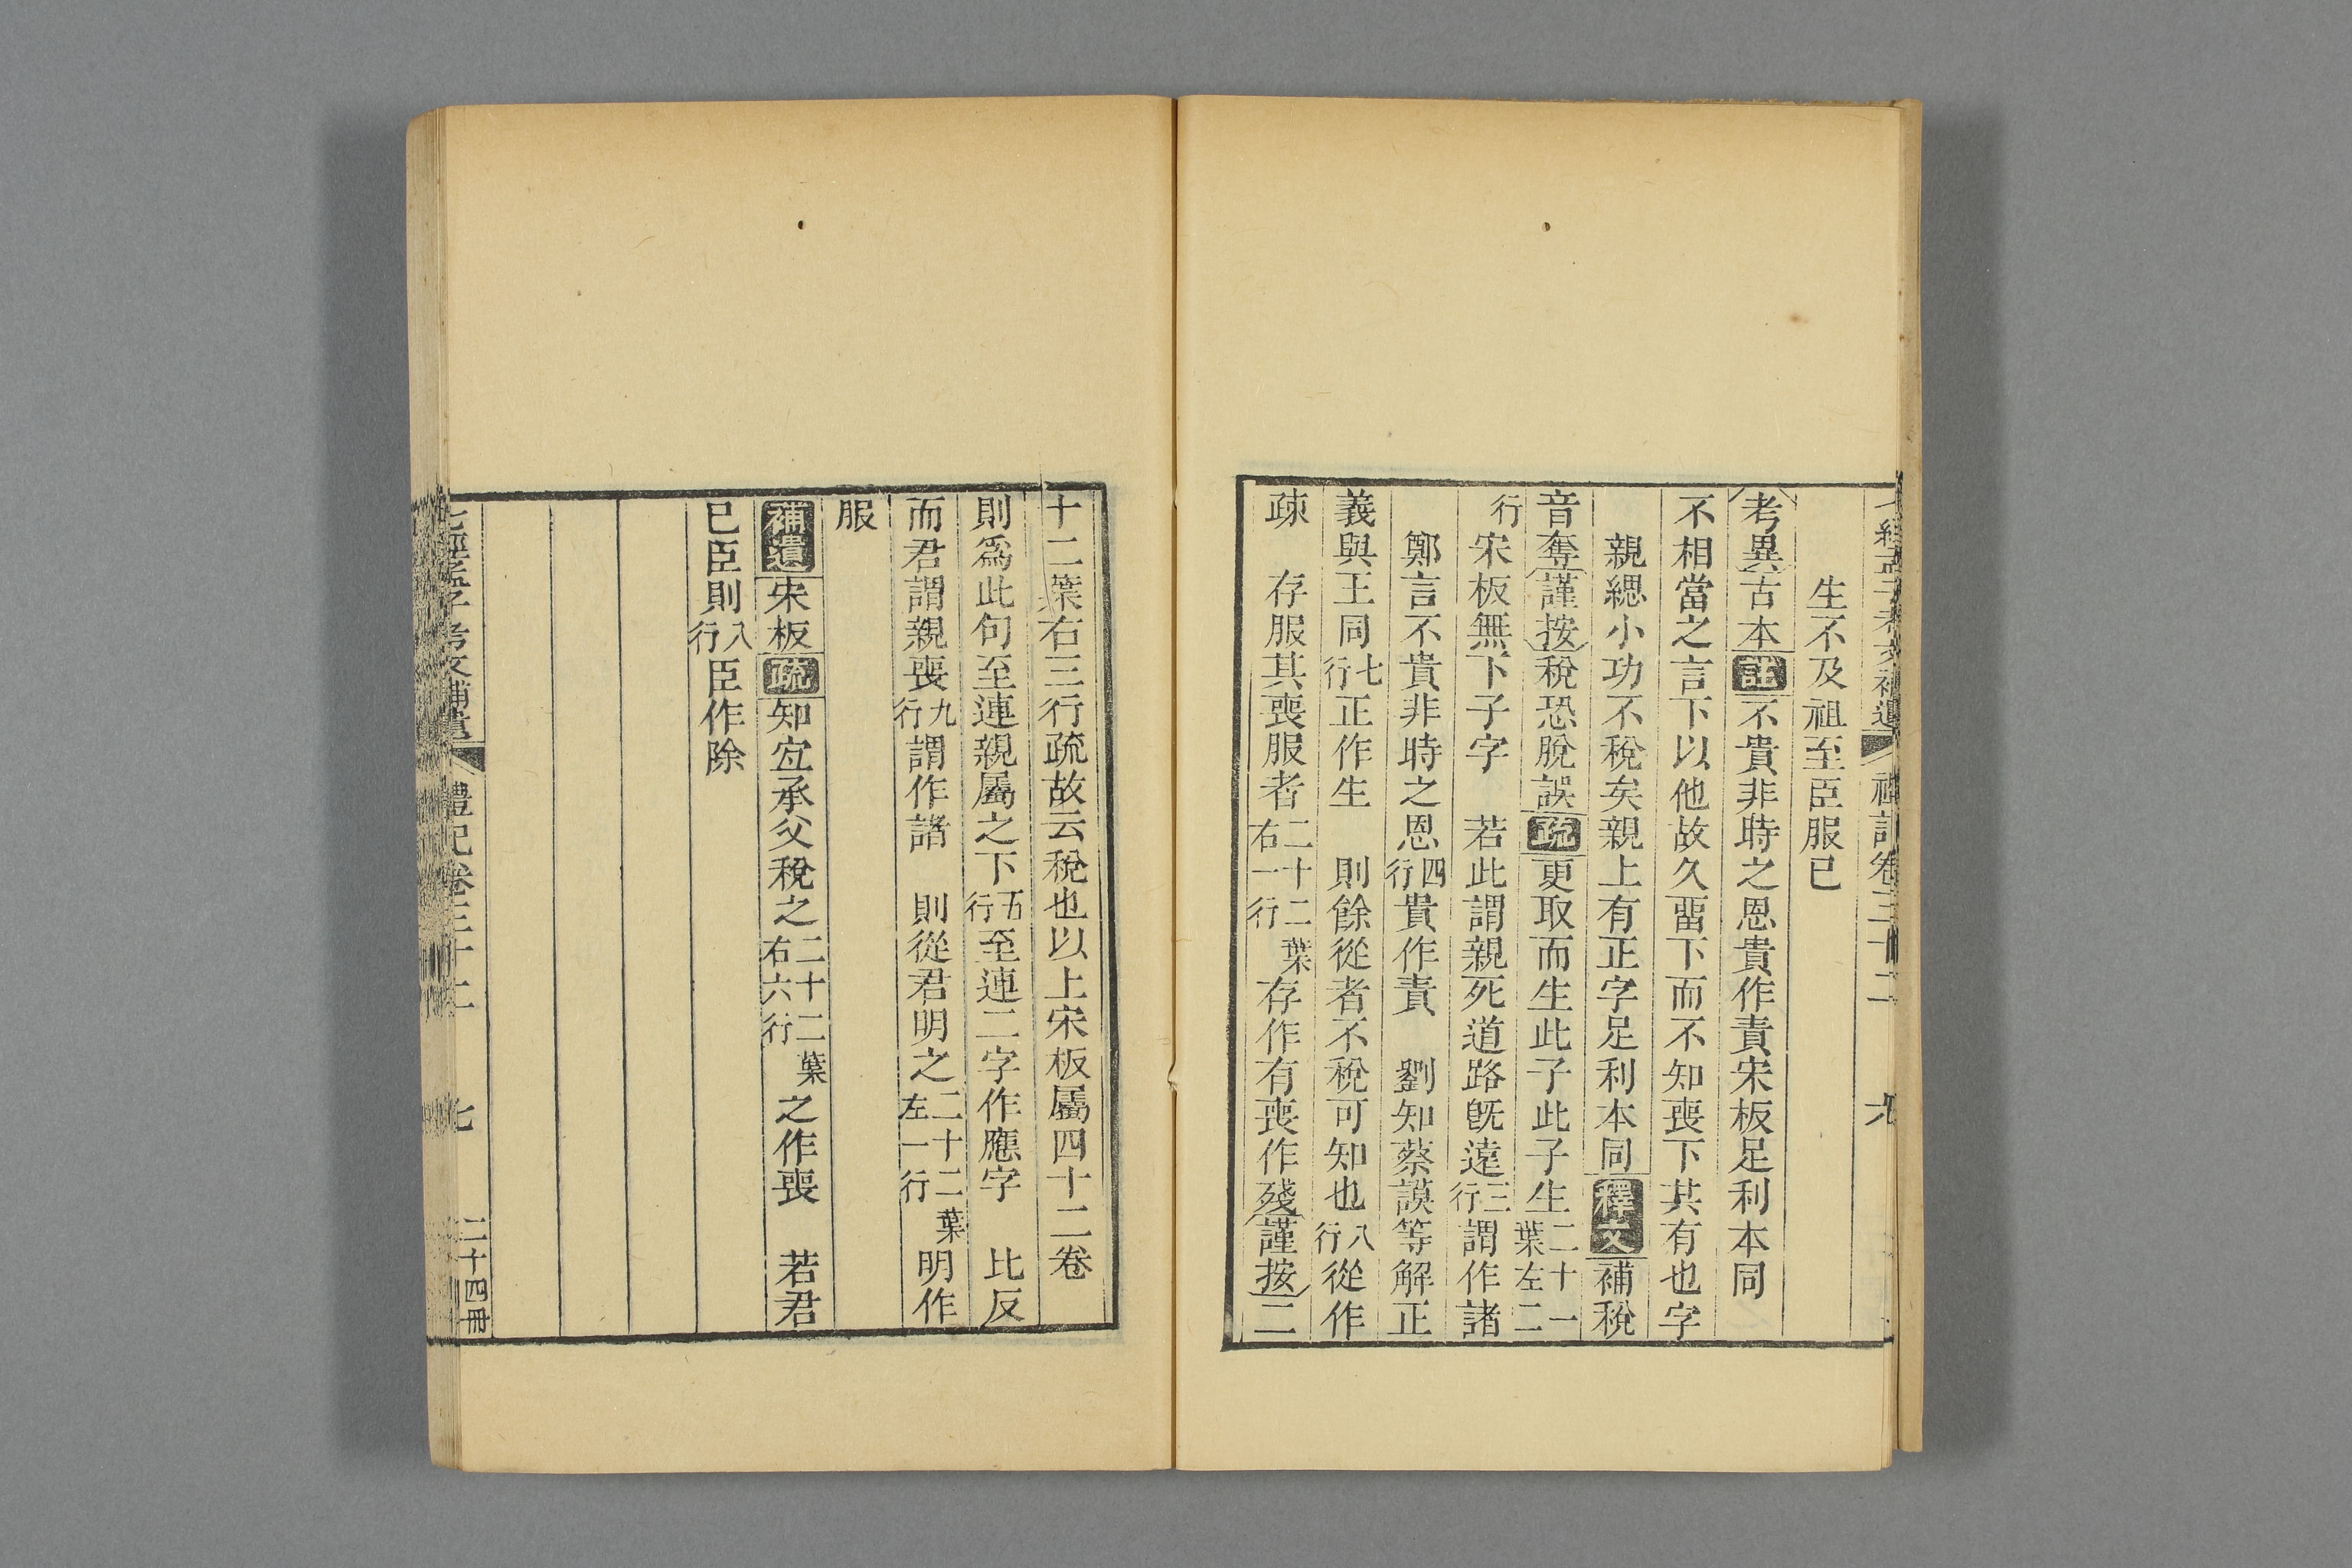 生不及祖至臣服已
考異古本註不貴非時之恩貴作責宋板足利本同
不相當之言下以他故久畱下而不知喪下其有也字
親緦小功不稅矣親上有正字足利本同釋文補稅
音奪謹按稅恐脫誤疏更取而生此子此子生二十一葉左二
行宋板無下子字　若此謂親死道路旣遠三行謂作諸
鄭言不貴非時之恩四行貴作責　劉知蔡謨等解正
義與王同七行正作生　則餘從者不稅可知也八行從作
疎　存服其喪服者二十二葉右一行存作有喪作殘謹按二
十二葉右三行疏故云稅也以上宋板屬四十二卷
則爲此句至連親屬之下五行至連二字作應字　比反
而君謂親喪九行謂作諸　則從君明之二十二葉左一行明作
服
補遺宋板疏知宐承父稅之二十二葉右六行之作喪　若君
已臣則八行臣作除
七經孟子考文補遺　禮記卷三十二　七　二十四冊